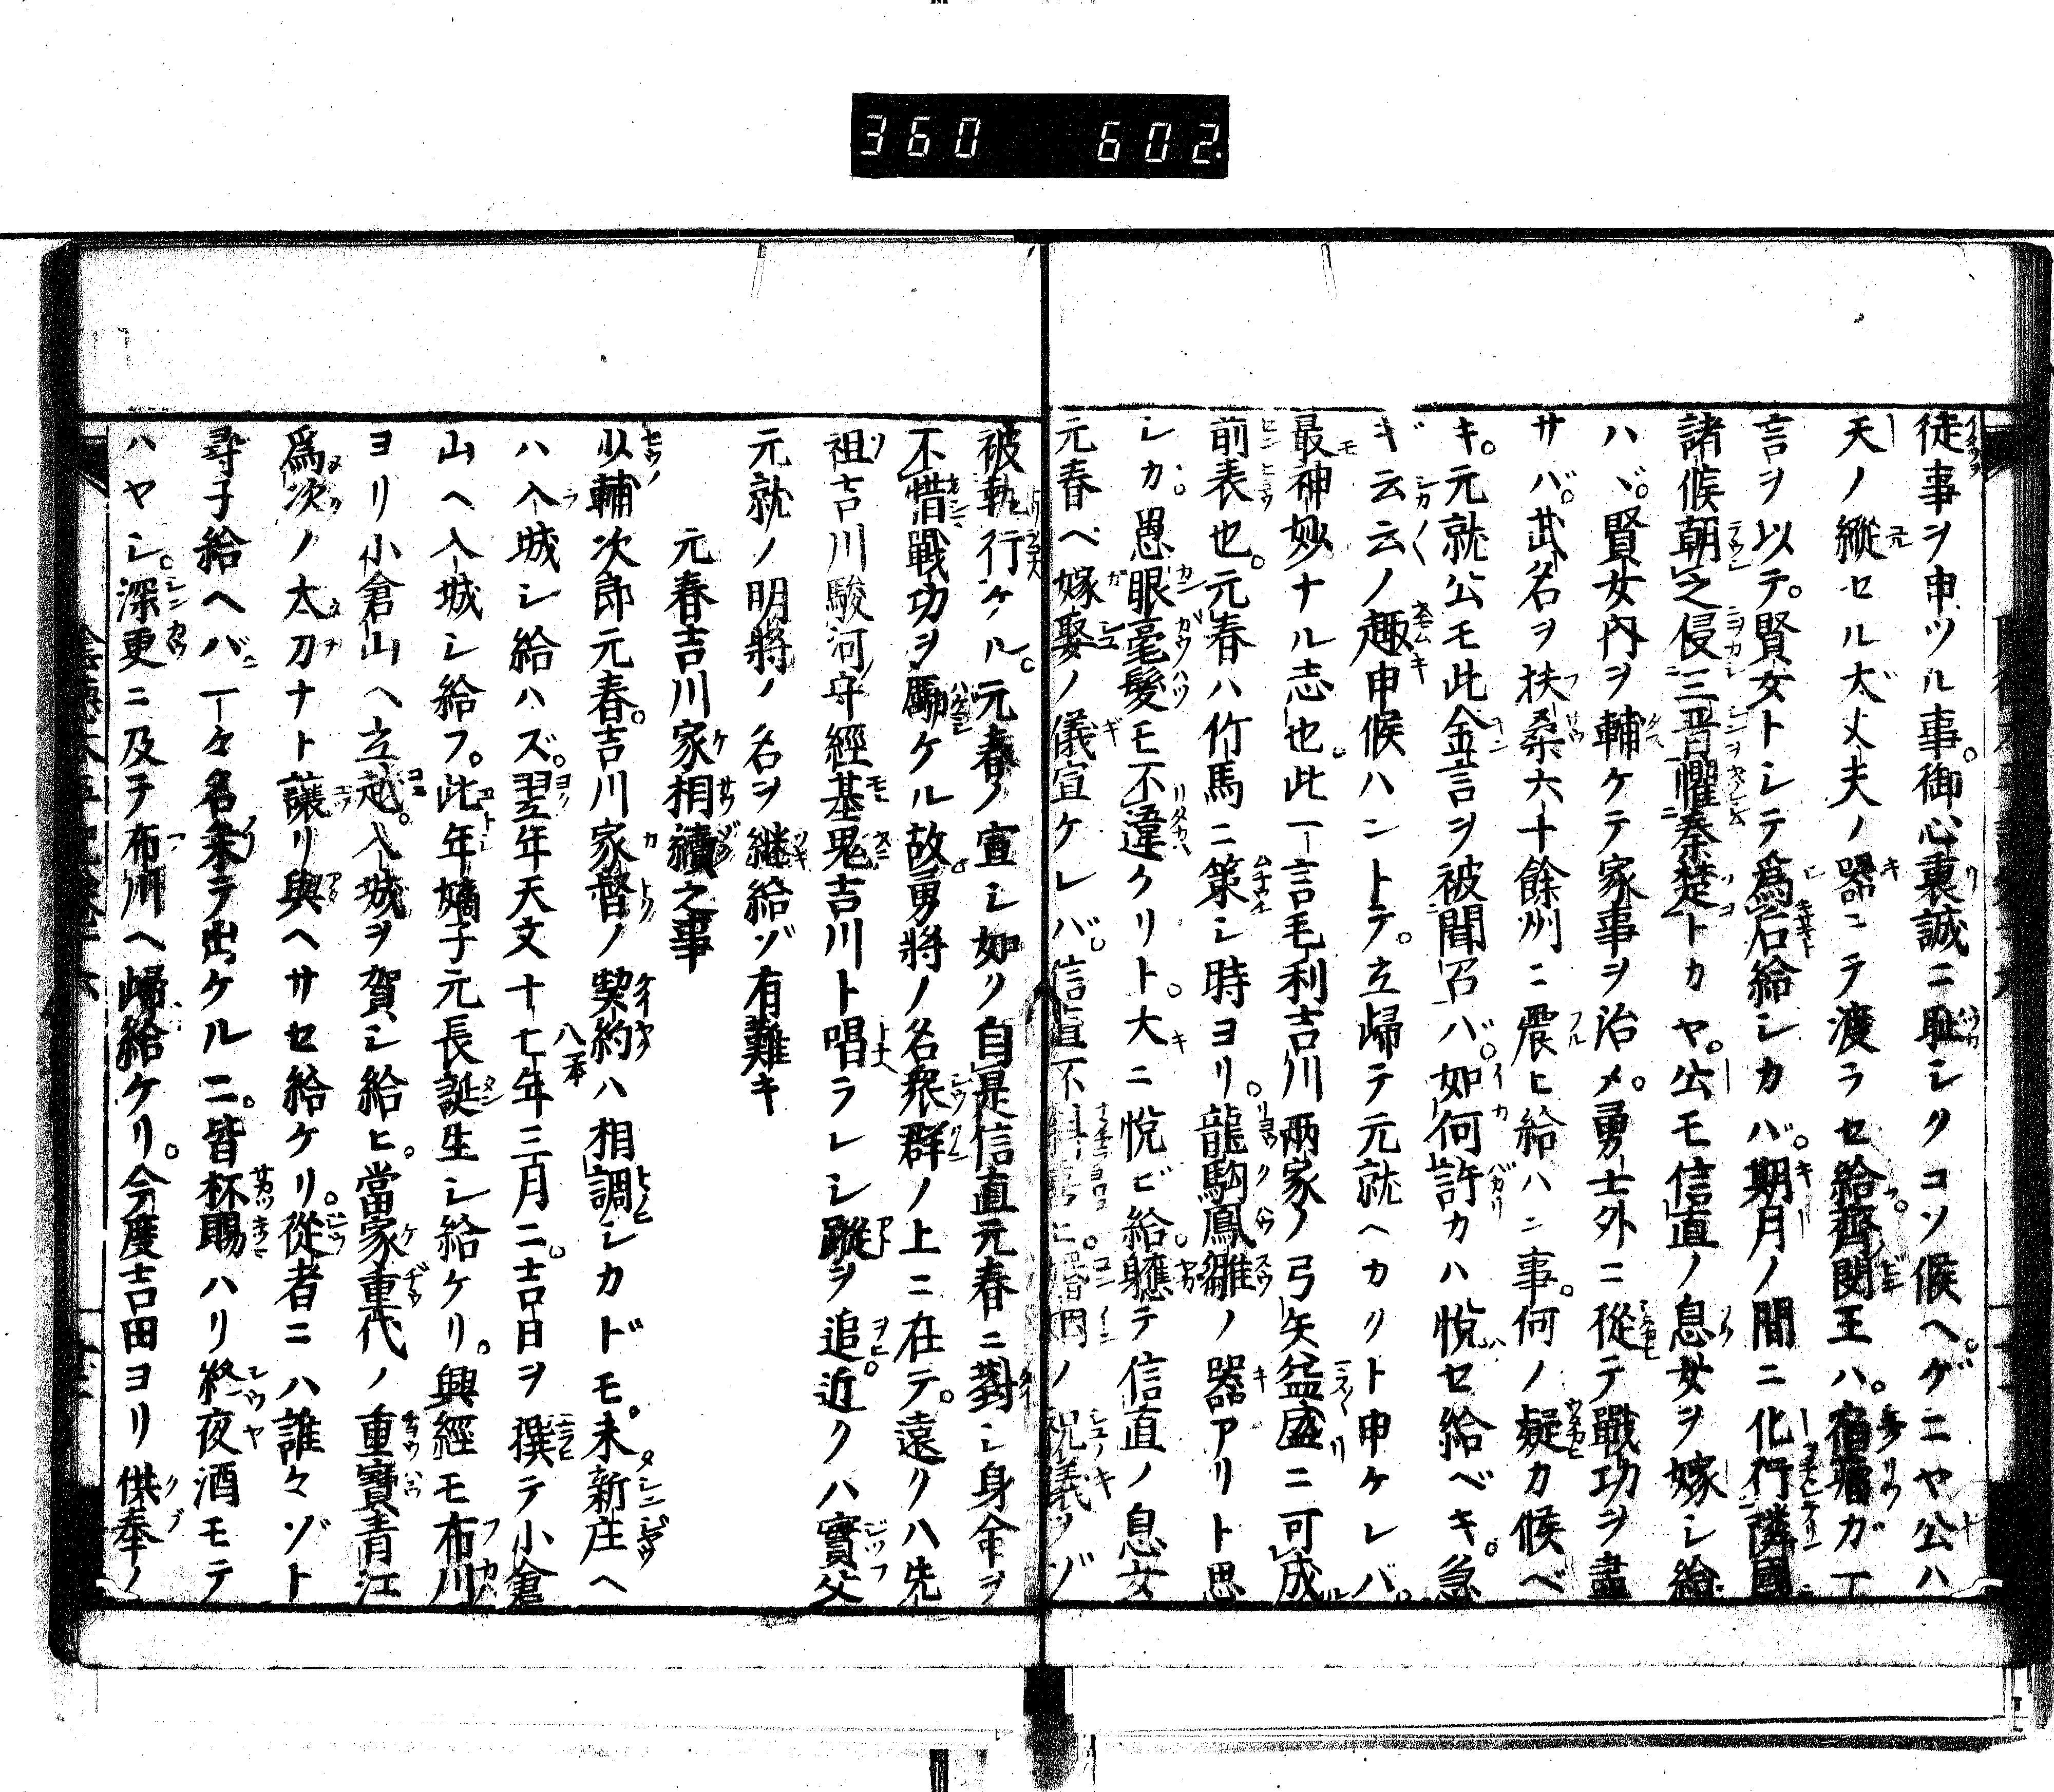 360 602.
徒事ヲ申ツル事。御心裏誠ニ耻シクコソ候ヘ。ゲニヤ公ハ
天ノ縦セル大丈夫ノ器ニテ渡ラセ給フ。齊閔王ハ。宿瘤ガ一
言ヲ以テ。賢女トシテ為后給シカバ。期月ノ間ニ化行隣國
諸侯朝之侵三晋懼秦楚トカヤ。公モ信直ノ息女ヲ嫁シ給
ハヾ。賢女内ヲ輔ケテ家事ヲ治メ。勇士外ニ從テ戰功ヲ盡
サバ。武名ヲ扶桑六十餘州ニ震ヒ給ハン事。何ノ疑カ候ベ
キ。元就公モ此金言ヲ被聞召バ。如何許カハ悦セ給ベキ。急
ギ云云ノ趣申候ハントテ。立歸テ元就ヘカクト申ケレバ。
最神妙ナル志也。此一言毛利吉川兩家ノ弓矢益盛ニ可成
前表也。元春ハ竹馬ニ策シ時ヨリ。龍駒鳳雛ノ器アリト思
シカ。愚眼毫髪モ不違ケリト。大ニ悦ビ給。軈テ信直ノ息女
元春ヘ嫁娶ノ儀宣ケレバ。信直不斜喜ヒ。婚姻ノ祝儀ヲゾ
被執行ケル。元春ノ宣シ如ク自是信直元春ニ對シ身命ヲ
不惜戰功ヲ勵ケル故。勇將ノ名衆群ノ上ニ在テ。遠クハ先
祖吉川駿河守經基鬼吉川ト唱ラレシ蹤ヲ追。近クハ實父
元就ノ明將ノ名ヲ継給ゾ有難キ
元春吉川家相續之事
少輔次郎元春。吉川家督ノ契約ハ相調シカドモ。未新庄ヘ
ハ入城シ給ハズ。翌年天文十七年三月ニ。吉日ヲ撰テ小倉
八本
山ヘ入城シ給フ。此年嫡子元長誕生シ給ケリ。興經モ布川
ヨリ小倉山ヘ立越。入城ヲ賀シ給ヒ。當家重代ノ重寶青江
為次ノ太刀ナト讓リ與ヘサセ給ケリ。從者ニハ誰々ゾト
尋子給ヘバ一々名乗ラ出ケルニ。皆杯賜ハリ終夜酒モテ
ハヤシ。深更ニ及テ布川ヘ歸給ケリ。今度吉田ヨリ供奉ノ